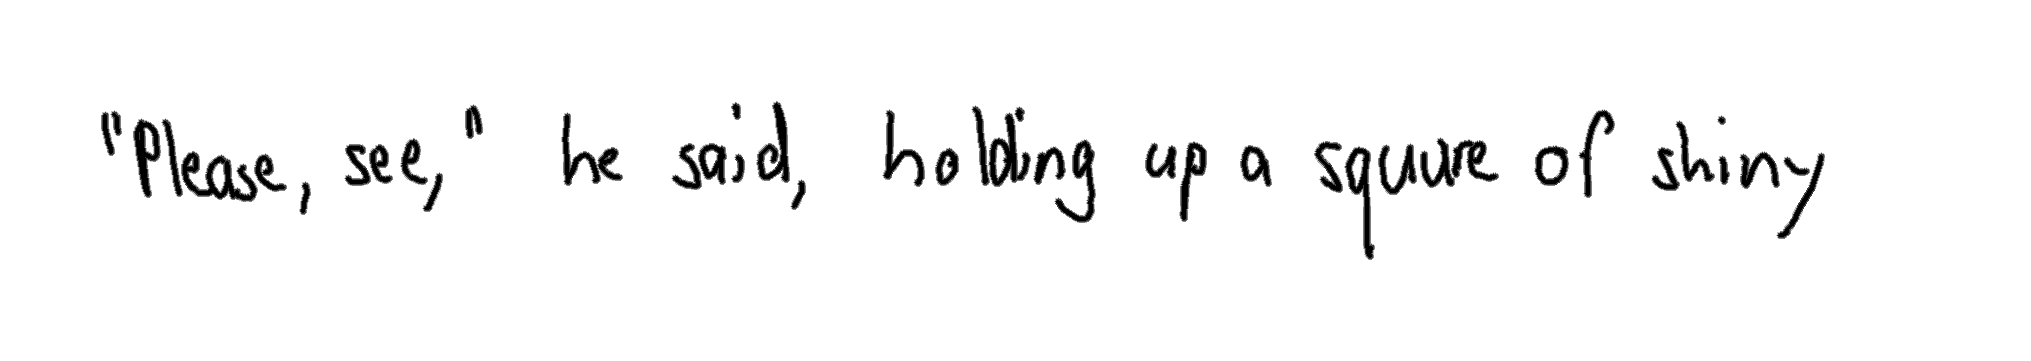 "Please, see," he said, holding up a square of shiny